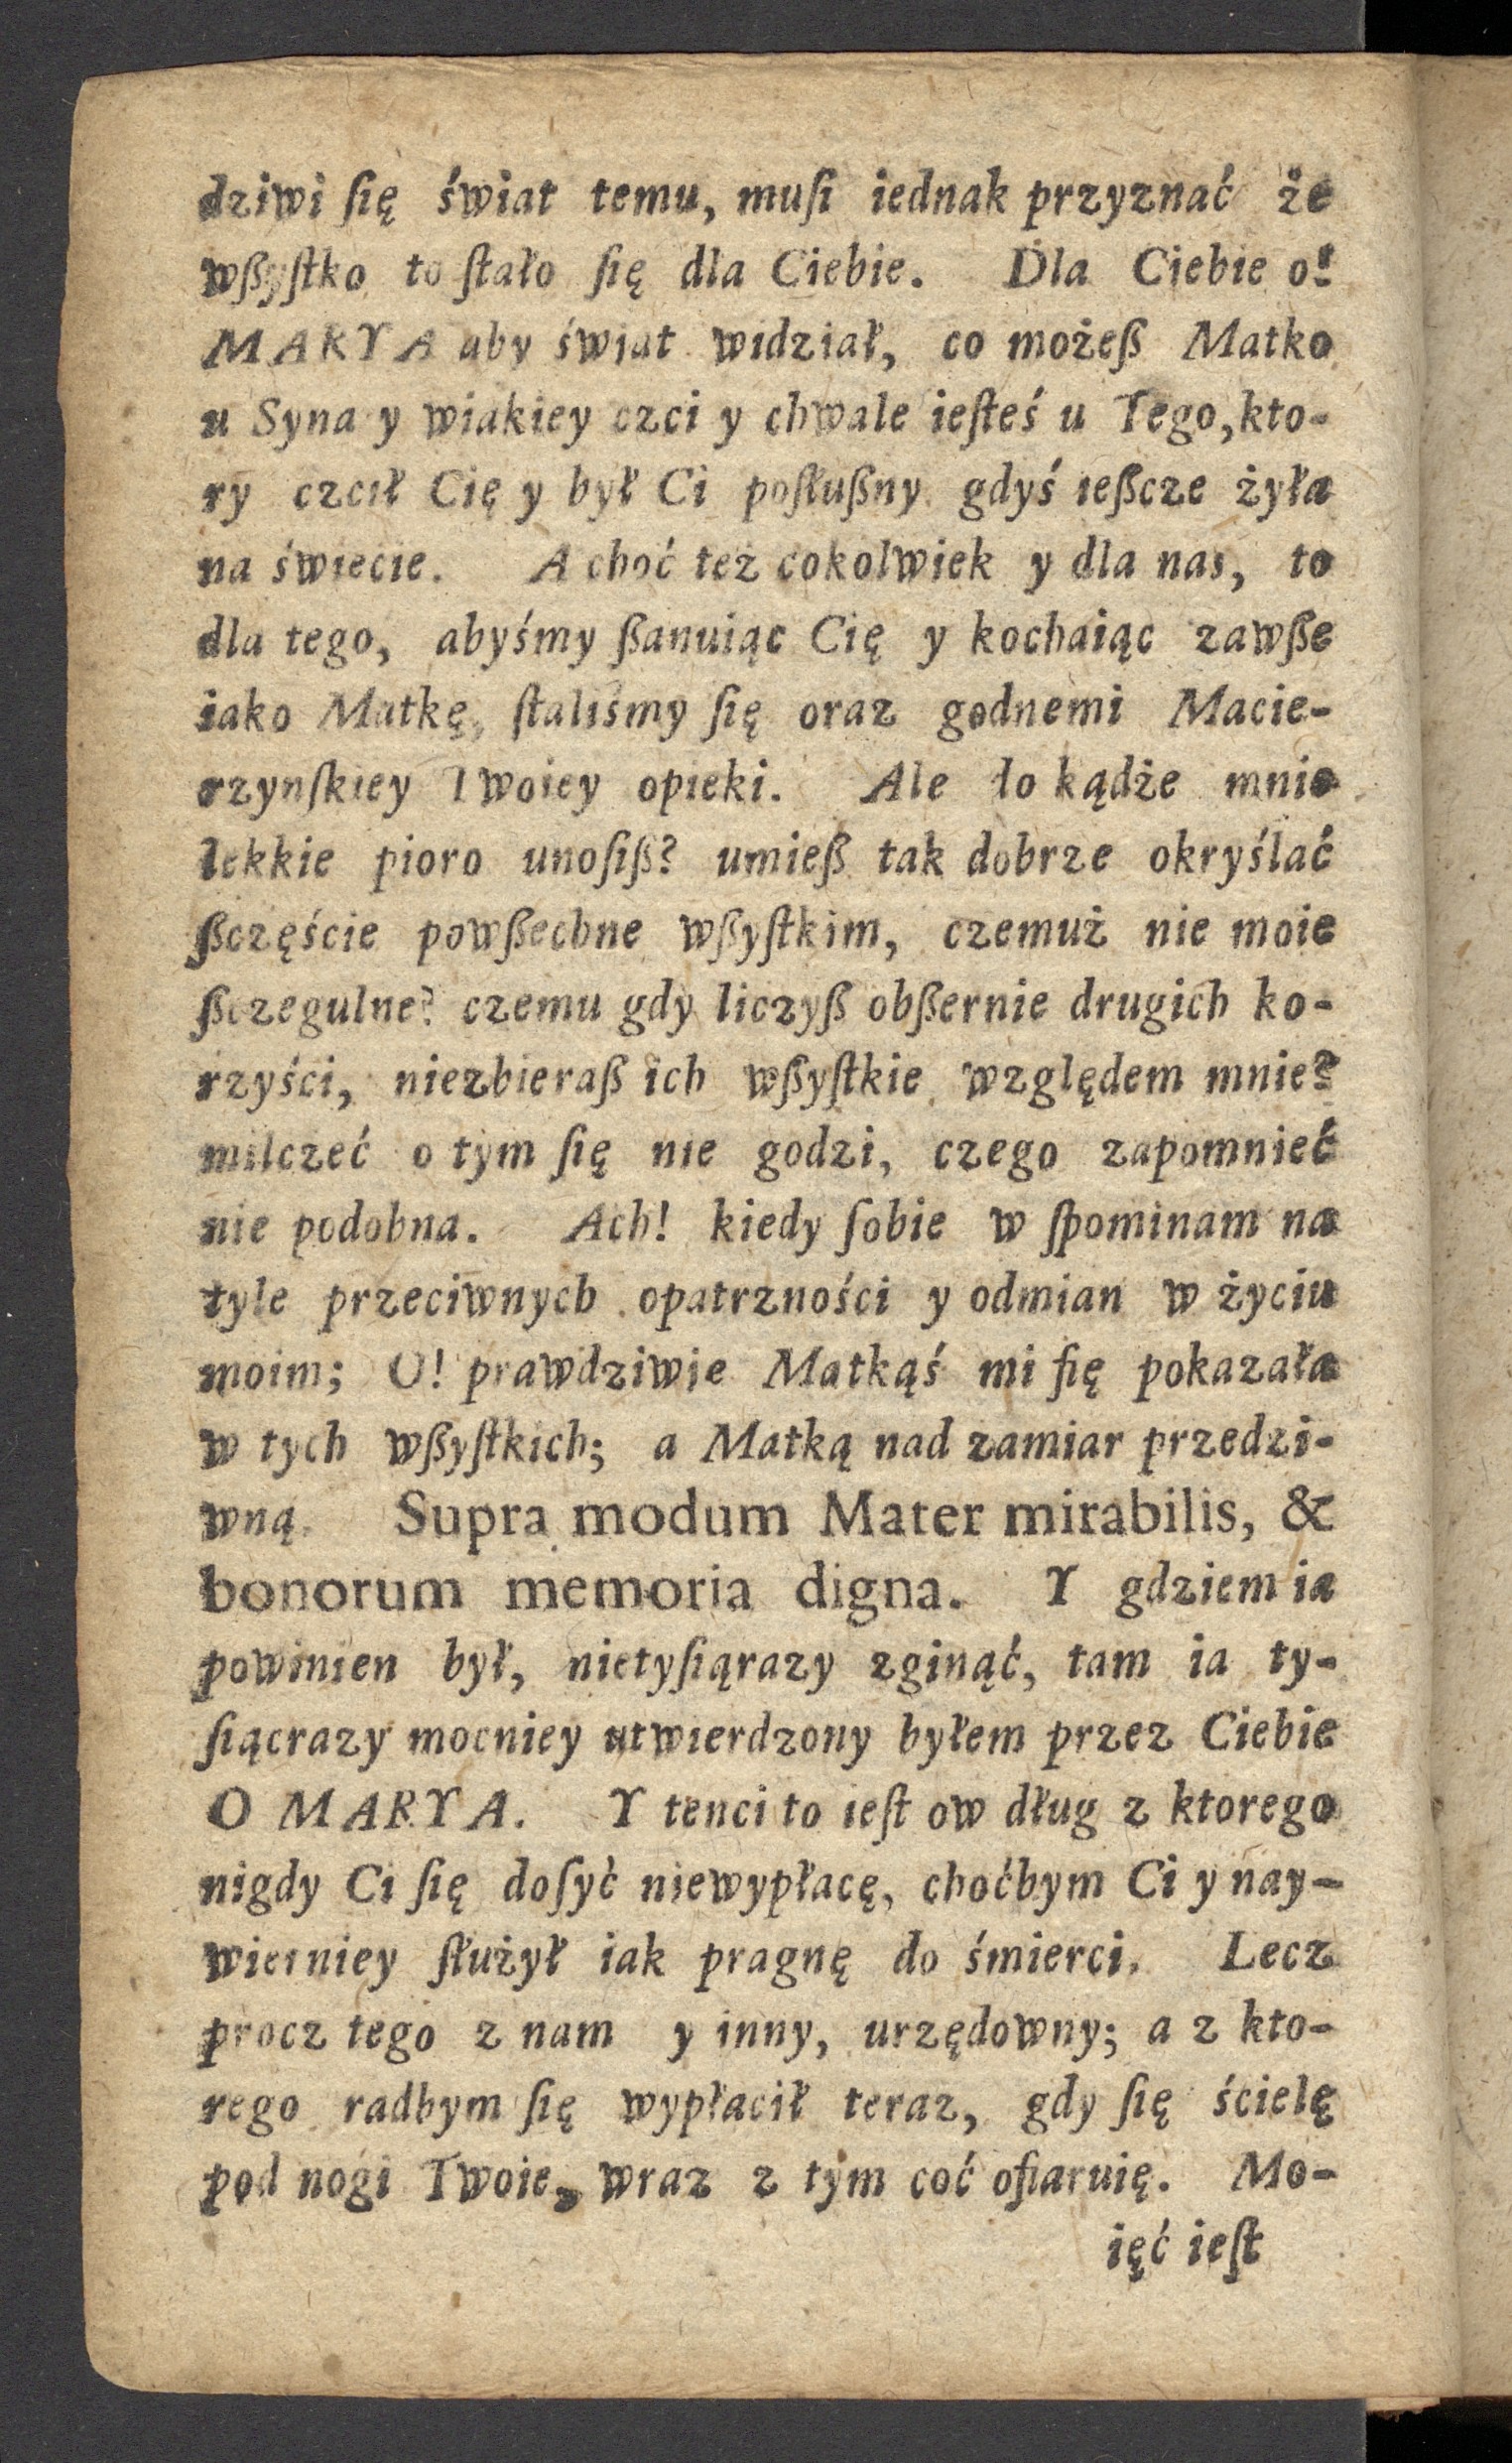 dziwi ſię świat temu, muſi iednak przyznać że
wßyſtko to ſtało ſię dla Ciebie. Dla Ciebie o!
MARYA aby świat widział, co możeß Matko
u Syna y wiakiey czci y chwale ieſteś u Tego, kto-
ry czcił Cię y był Ci poſłußny gdyś ießcze żyła
na świecie. A choć tez cokolwiek y dla nas, to
dla tego, abyśmy ßanuiąc Cię y kochaiąc zawße
iako Matkę, ſtaliśmy ſię oraz godnemi Macie-
rzynſkiey Twoiey opieki. Ale do kądże mnie
lekkie pioro unoſiß? umieß tak dobrze okryślać
ßczęście powßechne wßyſtkim, czemuż nie moie
ßczegulne? czemu gdy liczyß obßernie drugich ko-
rzyści, niezbieraß ich wßyſtkie względem mnie?
milczeć o tym ſię nie godzi, czego zapomnieć
nie podobna. Ach! kiedy ſobie w ſpominam na
tyle przeciwnych opatrzności y odmian w życiu
moim; O! prawdziwie Matkąś mi ſię pokazała
w tych wßyſtkich; a Matką nad zamiar przedzi-
wną. Supra modum Mater mirabilis, &
bonorum memoria digna. Y gdziem ia
powinien był, nietyſiąrazy zginąć, tam ia ty-
ſiącrazy mocniey utwierdzony byłem przez Ciebie
O MARYA. Y tenci to ieſt ow dług z ktorego
nigdy Ci ſię doſyć niewypłacę, choćbym Ci y nay-
wierniey ſłużył iak pragnę do śmierci. Lecz
procz tego z nam y inny, urzędowny; a z kto-
rego radbym ſię wypłacił teraz, gdy ſię ścielę
pod nogi Twoie, wraz z tym coć ofiaruię. Mo-
ięć ieſt